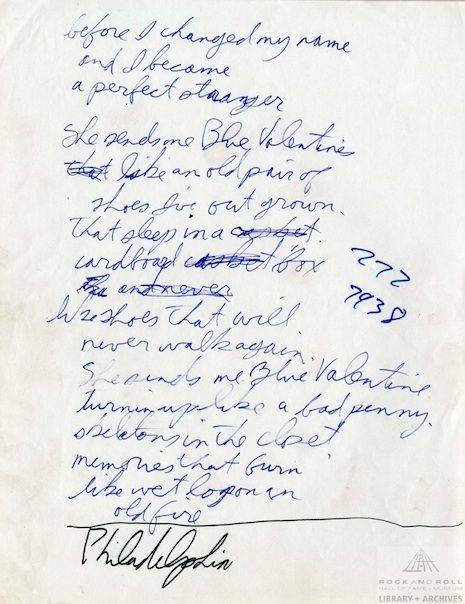 before I changed my name
and I became
a perfect stranger
She sends me Blue Valentines
that like an old pair of
shoes I've out grown.
That sleep in a
cardboard box
and never
like shoes that will
never walk again.
She sends me Blue Valentine
turnin up like a bad penny.
skeletons in the closet
memories that burn
like wet logs on an
old fire
Philadelphia
777
7938
ROCK AND ROLL
HALL OF FAME + MUSEUM
LIBRARY + ARCHIVES